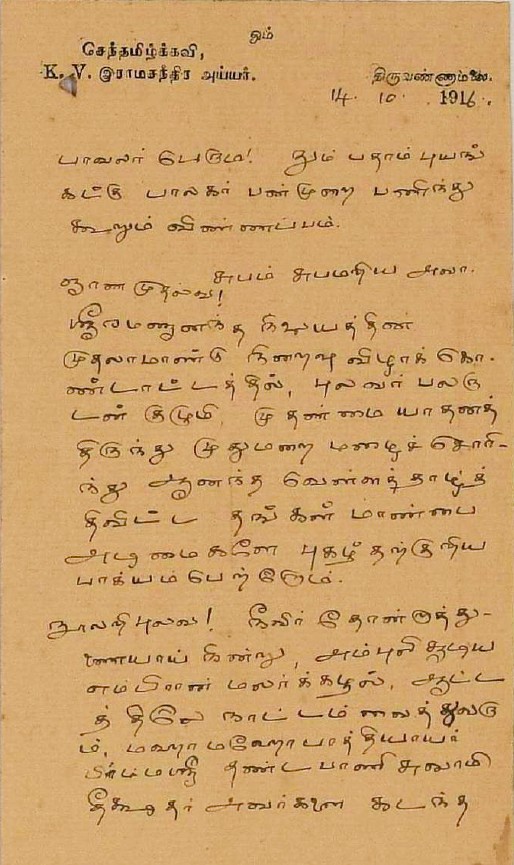 ஓம்
செந்தமிழ்க்கவி,
K. V. இராமசந்திர அய்யர்.
திருவண்ணாமலை.
14. 10. 1916.
பாவலர் பெரும! நும் பதாம்புயங்
கட்கு பாலகர் பன்முறை பணிந்து
கூறும் விண்ணப்பம்.
சுபம் சுபமறிய அவா.
ஞான முதல்வ!
நிலயத்தின்
முதலாமாண்டு நிறைவு விழாக் கொ-
ண்டாட்டத்தில், புலவர் பலரு
டன் குழுமி, முதன்மை யாதனத்
திருந்து முதுமறை மழைச் சொரி-
ந்து ஆனந்த வெள்ளத்தாழ்த்
திவிட்ட தங்கள் மாண்பை
அடிமைகளோ புகழ்தற்குரிய
பாக்யம் பெற்றேம்.
நூலறி புலவ! நீவிர் தோன்றாத்து-
ணையாய் நின்று, அம்புலி சூடிய
எம்பிரான் மலர்க்கழல்,
நாட்டம் வைத்துவரு
ம், மஹாமஹோபாத்தியாயர்
பிரம்மஸ்ரீ தண்டபாணி சுவாமி
தீக்ஷதர் அவர்களை கடந்த